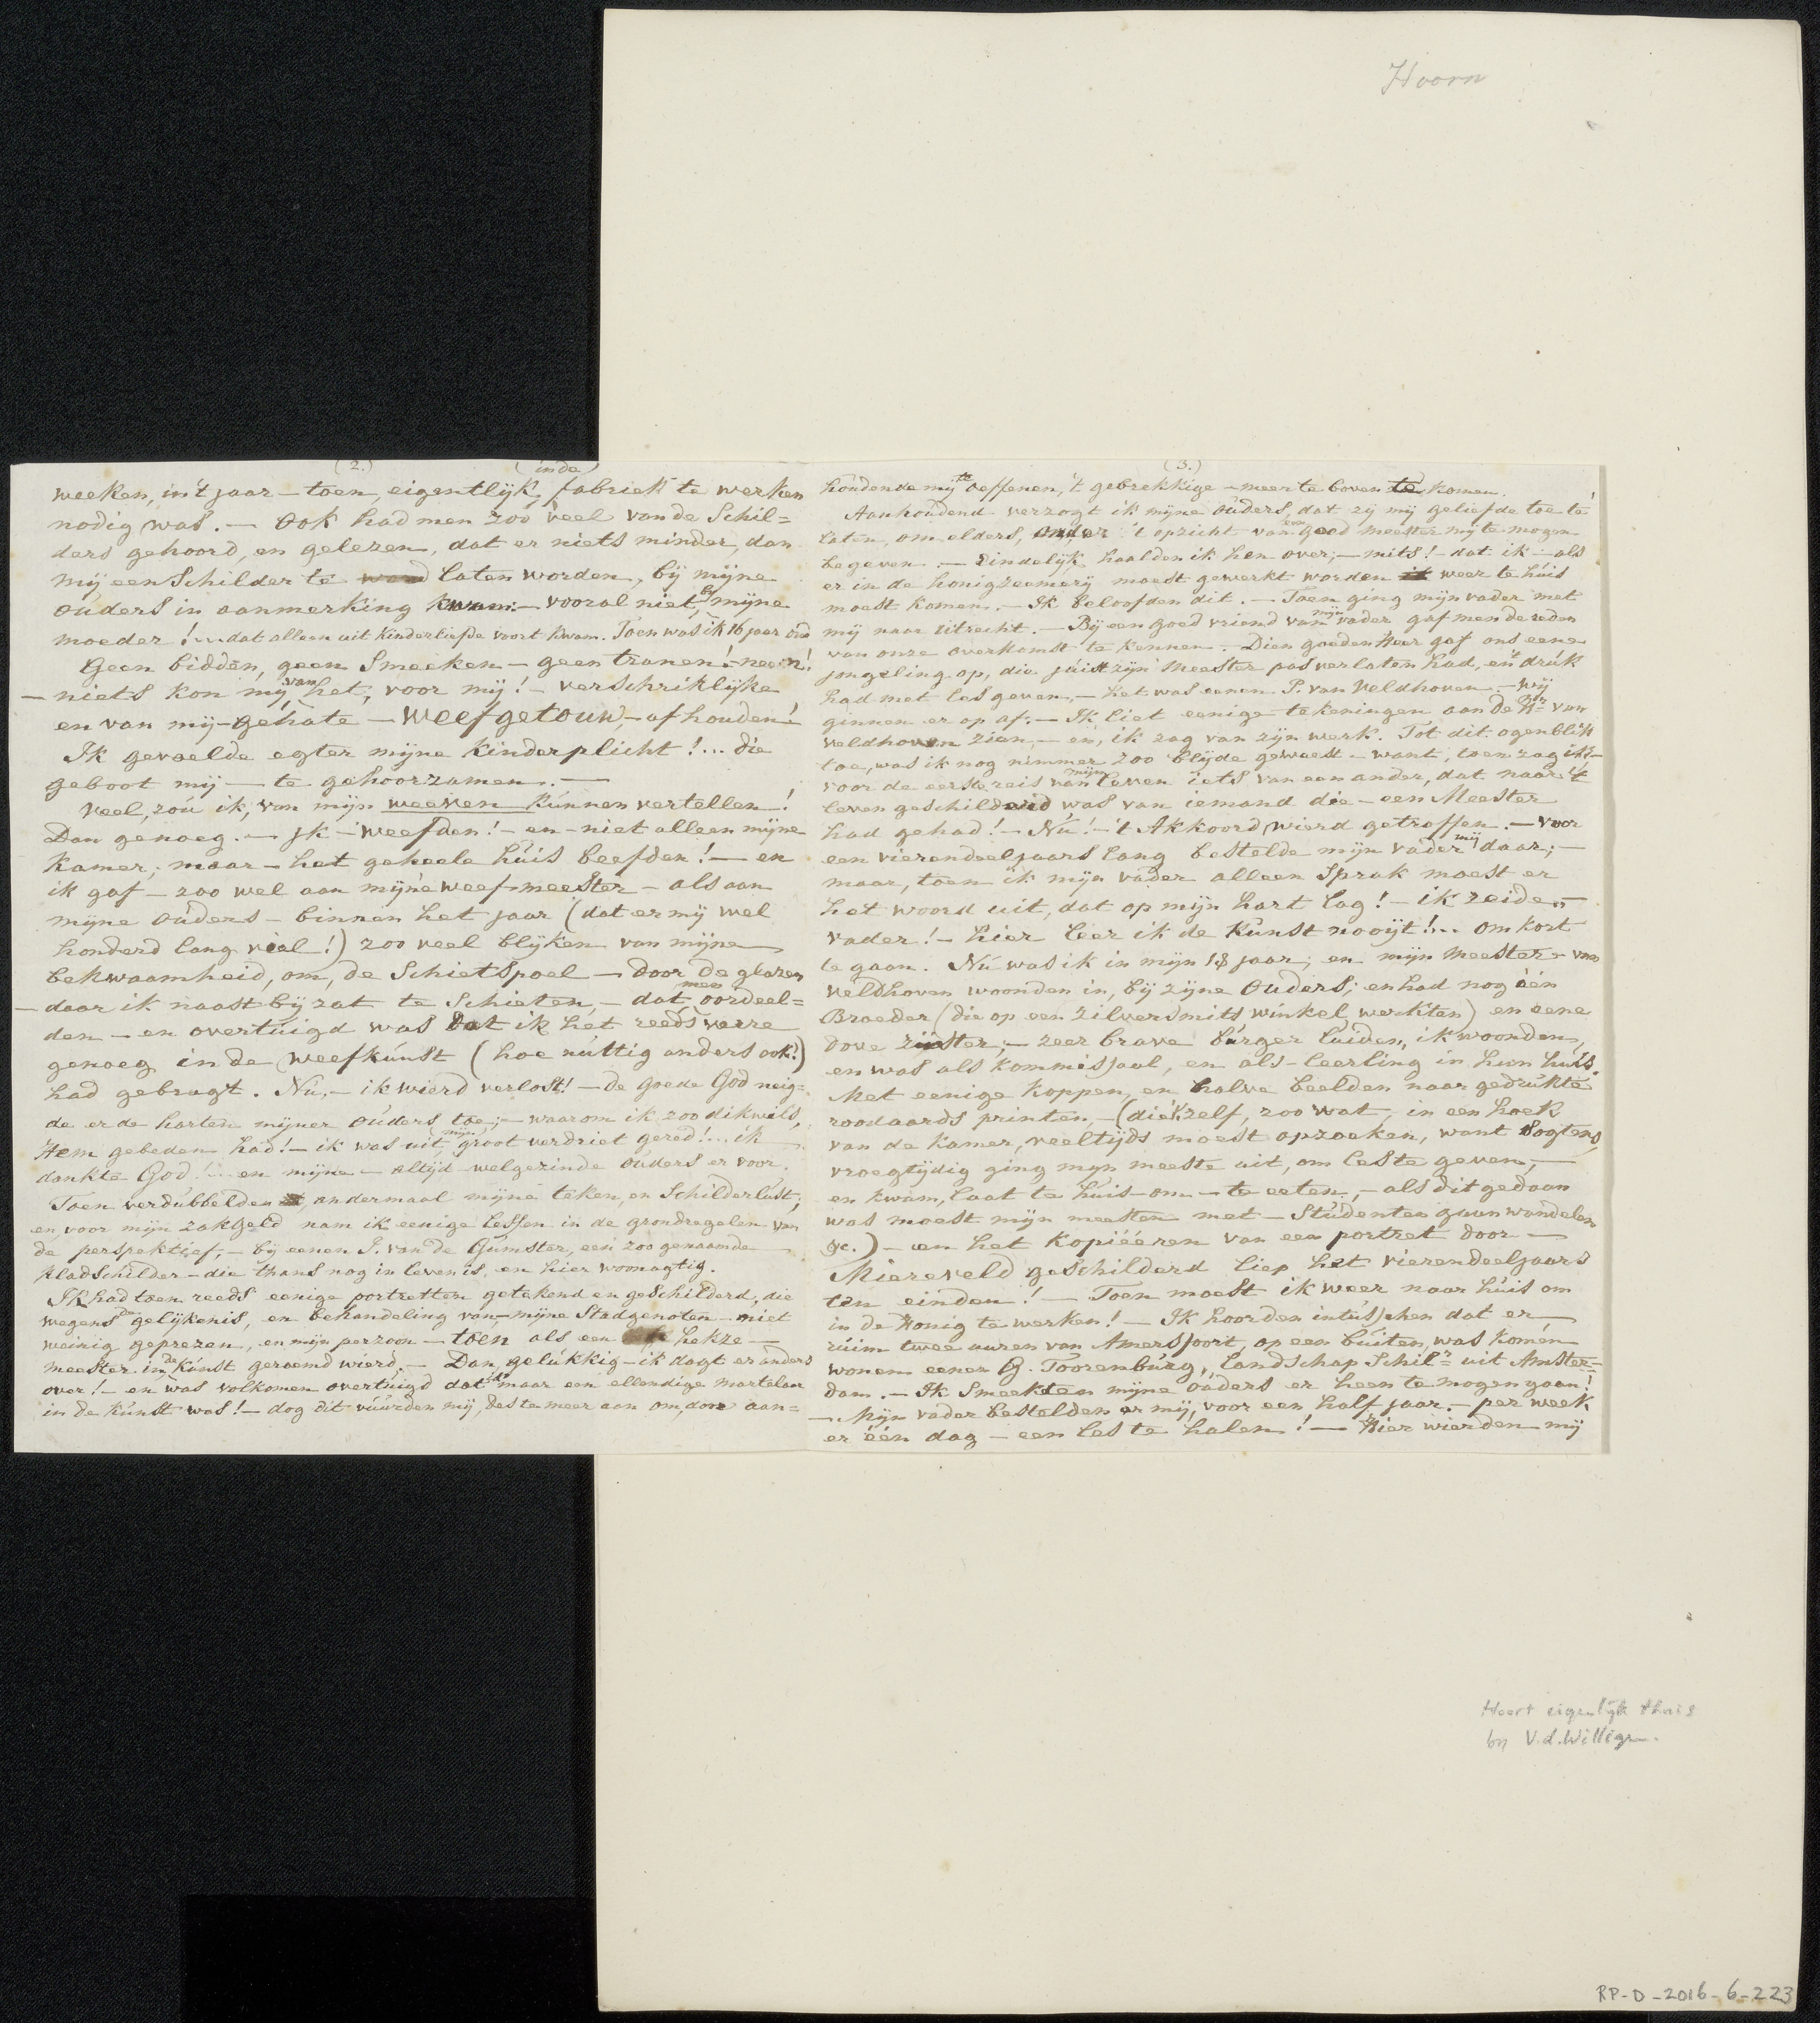 Hoorn
(2.)
(in de)
weeken, in 't jaar — toen, eigentlijk, fabriek te werken
nodig was. — Ook had men zoo veel van de Schil=
ders gehoord, en gelezen, dat er niets minder, dan
mij een Schilder te laten worden, bij mijne
ouders in aanmerking kwam: — vooral niet, bij mijne
moeder!... dat alleen uit kinderliefde voort kwam. Toen was ik 16 jaar oud
Geen bidden, geen Smeeken — geen tranen! — neen!
— niets kon mij van het, voor mij! — verschriklijke
en van mij — gehate — Weefgetouw — afhouden!
Ik gevoelde egter mijne Kinderplicht!... die
geboot mij — te gehoorzamen. —
Veel, zoú ik, van mijn weeven kúnnen vertellen!
Dan genoeg. — jk — weefden! — en — niet alleen mijne
kamer; maar — het geheele húis beefden! — en
ik gaf — zoo wel aan mijne weef-meester — als aan
mijne ouders — binnen het jaar (dat er mij wel
honderd lang viel!) zoo veel blijken van mijne
bekwaamheid, om, de Schietspoel — door de glazen
— daar ik naast bij zat te Schieten, — dat men oordeel=
den — en overtuigd was dat ik het reeds verre
genoeg in de weefkúnst (hoe núttig anders ook!)
had gebragt. Nú, — ik wierd verlost! — de goede God neig=
de er de harten mijner ouders toe; — waarom ik zoo dikwils,
Hem gebeden had! — ik was uit mijn groot verdriet gered!... ik
dankte God!... en mijne — altijd welgezinde ouders er voor.
Toen verdubbelden andermaal mijne teken, en Schilderlust;
en voor mijn zakgeld nam ik eenige lessen in de grondregelen van
de perspektief, — bij eenen J. van de Gumster, een zoo genaamde
kladschilder — die thans nog in leven is, en hier woonagtig.
Ik had toen reeds eenige portretten getekend en geschilderd, die
wegens de gelijkenis, en behandeling van mijne Stadgenoten — niet
weinig geprezen, en mijn perzoon — toen als een hekze —
meester in de kúnst geroemd wierd. — Dan, gelúkkig — ik dagt er anders
over! — en was volkomen overtuigd dat ik maar een ellendige martelaar
in de kúnst was! — dog dit vuurden mij des te meer aan om, door aan=
(3.)
houdende mij te oeffenen, 't gebrekkige — meer te boven te komen.
Aanhoudend verzogt ik mijne ouders, dat zij mij geliefde toe te
laten, om elders, onder 't opzicht van een goed meester mij te mogen
begeven. — Eindelijk haalden ik hen over; — mits! dat ik — als
er in de honigzeemerij moest gewerkt worden weer te húis
moest komen. — Ik beloofden dit. — Toen ging mijn vader met
mij naar Utrecht. — Bij een goed vriend van mijn vader gaf men de reden
van onze overkomst te kennen. Dien goeden Heer gaf ons eene
jongeling op, die júist zijn Meester pas verlaten had, en 't drúk
had met les geven, — het was eenen P. van Veldhoven. — Wij
ginnen er op af: — Ik liet eenige tekeningen aan de Hr van
Veldhoven zien, — en, ik zag van zijn werk. Tot dit ogenblik
toe, was ik nog nimmer zoo blijde geweest — want, toen zag ik —
voor de eerste reis van mijn leven iets van een ander, dat naar 't
leven geschilderd was van iemand die — een Meester
had gehad! — Nú! — 't Akkoord wierd getroffen. — Voor
een vierendeeljaars lang bestelde mijn vader mij daar; —
maar, toen ik mijn vader alleen Sprak moest er
het woord uit, dat op mijn hart lag! — ik zeide, —
vader! — hier leer ik de Kúnst nooijt!... om kort
te gaan. Nú was ik in mijn 18 jaar; en mijn meester — van
Veldhoven woonden in, bij zijne Ouders; en had nog één
Broeder (die op een zilversmits winkel werkten) en eene
dove zuster; — zeer brave búrger luiden, ik woonden,
en was als kommisjaal, en als-leerling in hun húis.
Met eenige Koppen, en halve beelden naar gedrukte
roodaards printen, — (die 'k zelf, zoo wat, in een hoek
van de kamer, veeltijds moest opzoeken, want sogtens,
vroegtijdig ging mijn meeste uit, om les te geven, —
en kwam, laat te húis — om — te eeten, — als dit gedaan
was moest mijn meesten met — Stúdenten gaan wandelen
&c.) — en het Kopiëeren van een portret door —
Miereveld geschilderd liep het vierendeeljaars
ten einden! — Toen moest ik weer naar húis om
in de Honig te werken! — Ik hoorden intússchen dat er —
rúim twee uuren van Amersfoort, op een búiten, was komen
wonen eenen G. Toorenbúrg, Landschap Schilr uit Amster=
dam. — Ik Smeekten mijne ouders er heen te mogen gaan!
— Mijn vader bestelden er mij, voor een half jaar. — per week
er één dag — een les te halen! — Hier wierden mij
Hoort eigenlijk thuis
bij V.d. Willigen.
RP-D-2016-6-223